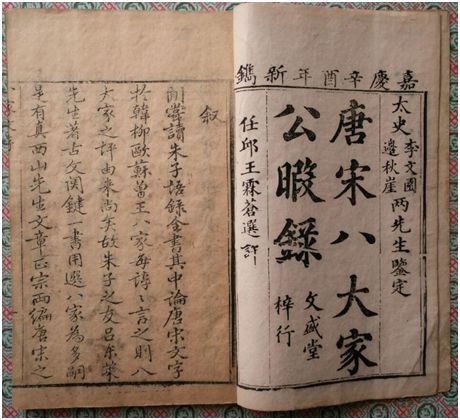 嘉慶辛酉年新鐫
太史李文園邊秋崖两先生鑒定
唐宋八大家
公暇録
文盛堂梓行
任邱王霖蒼選評
叙
閒嘗讀朱子語録全書其中論唐宋文字
於韓柳歐蘇曾王八家每諄〻言之則八
大家之評由来尚矣故朱子之友吕東萊
先生著古文関鍵一書用選八家為多嗣
是有真西山先生文章正宗兩編唐宋之